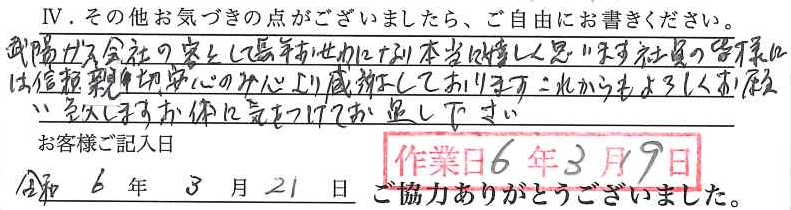 Ⅳ．その他お気づきの点がございましたら、ご自由にお書きください。
武陽ガス会社の客として長年おせわになり本当に嬉しく思います社員の皆様に
は信頼親切安心のみ心より感謝しております これからもよろしくお願
い致しますお体に気をつけてお過し下さい
お客様ご記入日
作業日 6年3月19日
令和 6 年 3 月 21 日 ご協力ありがとうございました。